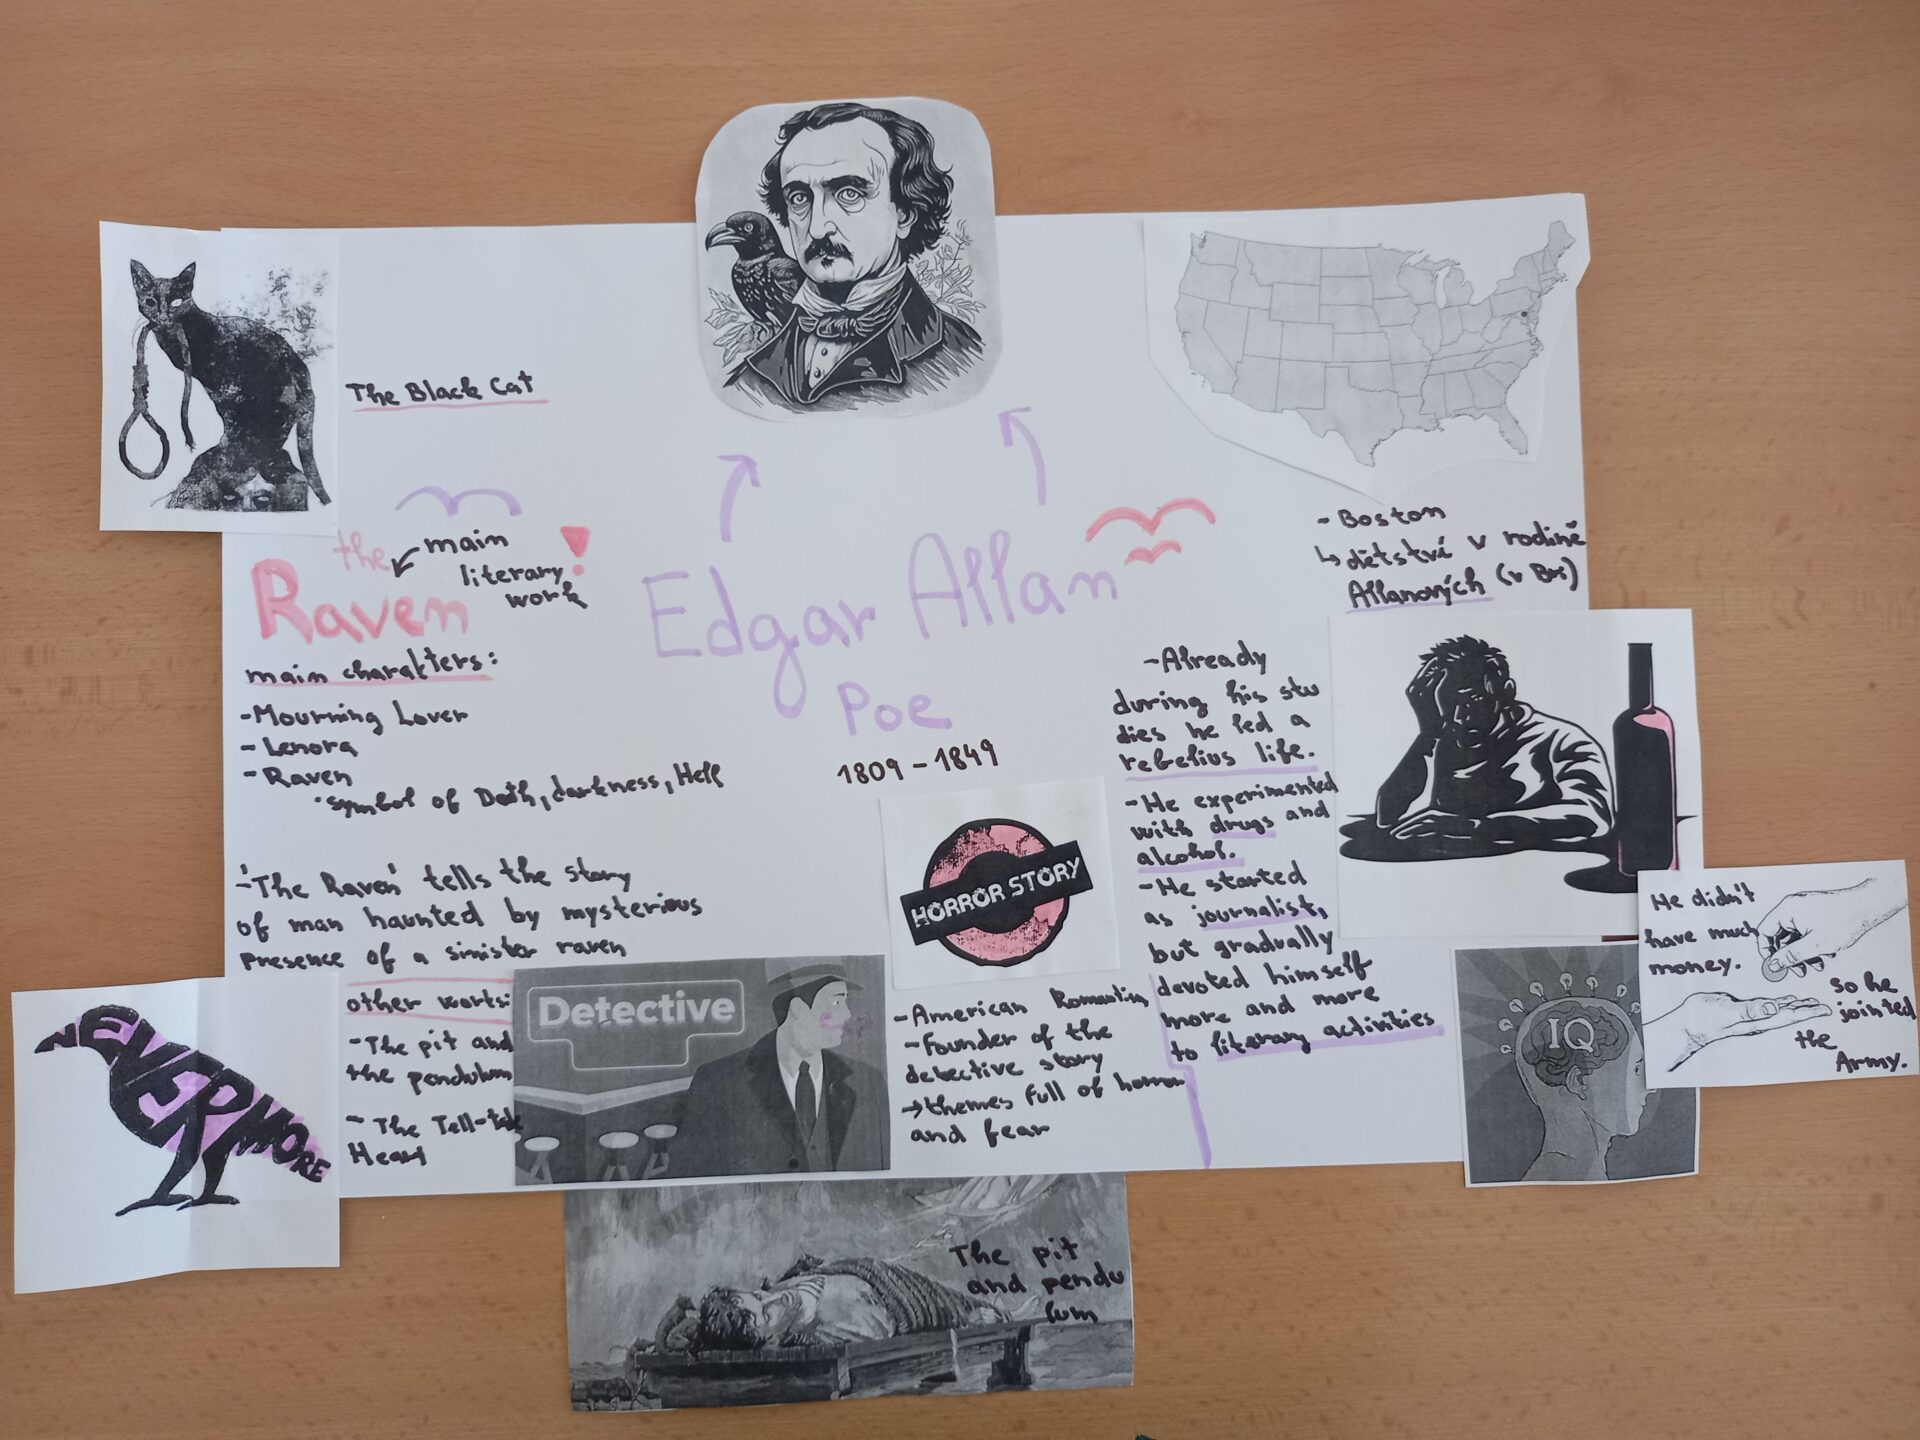 The Black Cat
the
Raven
main
literary
work
!
main charakters:
-Mourning Lover
-Lenora
-Raven
symbol of Death, darkness, Hell
-'The Raven' tells the story
of man haunted by mysterious
presence of a sinister raven
other works:
-The pit and
the pendulum
- The Tell-tale
Heart
NEVERMORE
Edgar Allan
Poe
1809-1849
HORROR STORY
Detective
-American Romantism
-Founder of the
detective story
→themes full of horror
and fear
The pit
and pendu
lum
-Boston
↳dětství v rodině
Allanových (v Bri)
-Already
during his stu
dies he led a
rebelius life.
-He experimented
with drugs and
alcohol.
-He started
as journalist,
but gradually
devoted himself
more and more
to literary activities
IQ
He didn't
have much
money.
so he
jointed
the
Army.